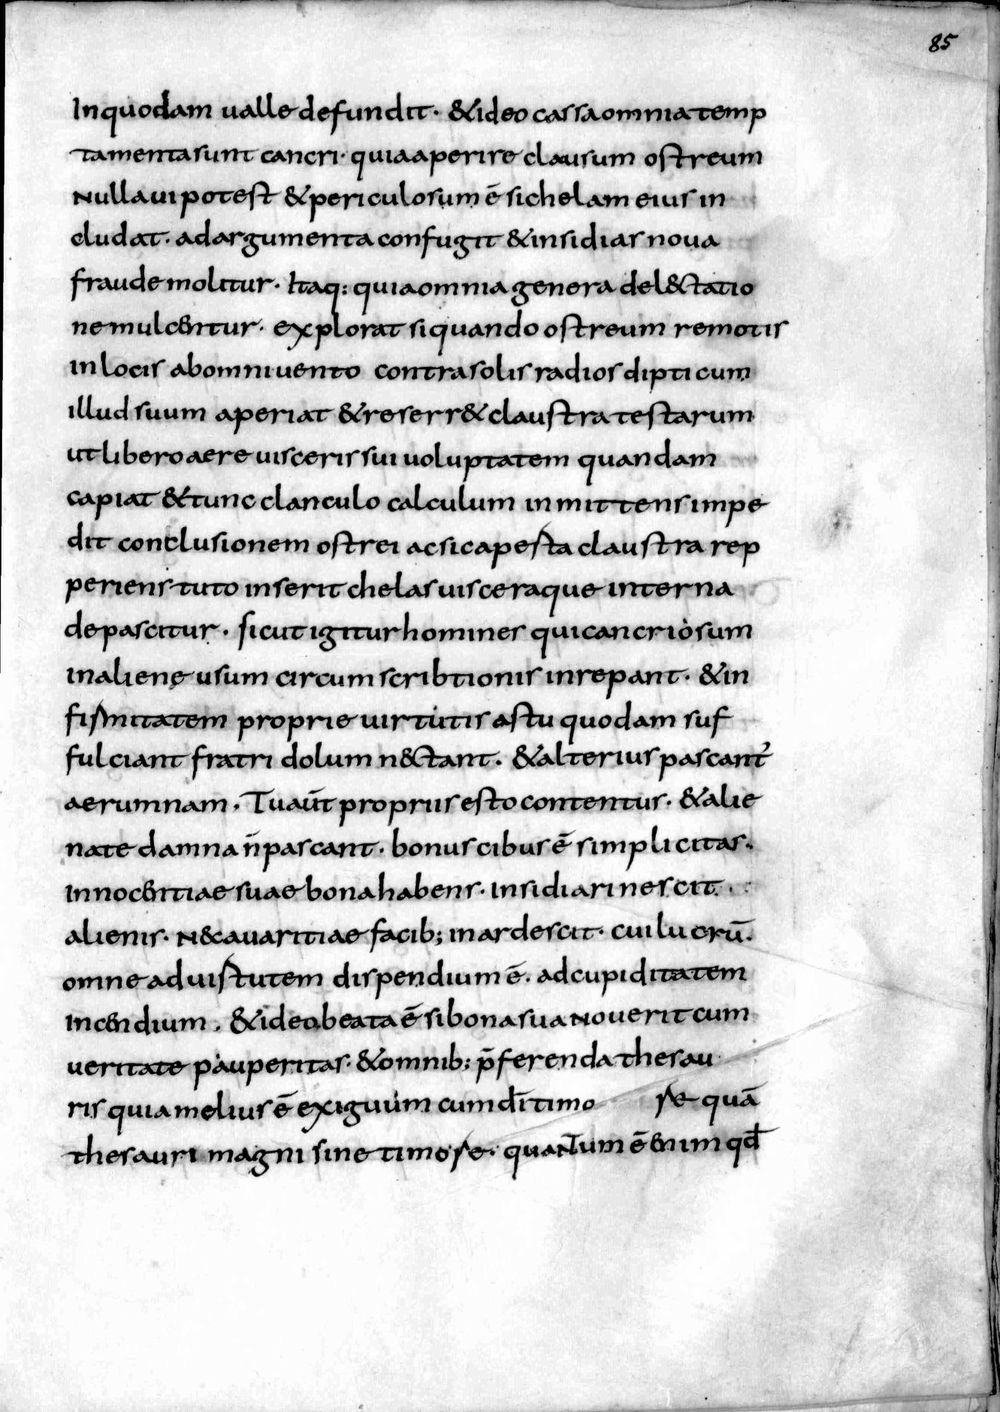 85
Inquodam ualle defundit· &ideo cassaomnia temp
tamentasunt cancri· quiaaperire clausum ostreum
Nulla uipotest &periculosum ē sichelam eius in
cludat· adargumenta confugit &insidias noua
fraude molitur· Itaq: quiaomnia genera del&tatio
ne mulcentur· explorat siquando ostreum remotis
inlocis abomniuento contrasolis radios dipticum
illud suum aperiat &reserr& claustra testarum
utlibero aere uisceris sui uoluptatem quandam
capiat &tunc clanculo calculum inmittens impe
dit conclusionem ostrei acsicapesta claustra rep
periens tuto inserit chelas uisceraque interna
depascitur· sicut igitur homines quicancriosum
inalienę usum circumscribtionis inrepant· &in
firmitatem proprie uirtutis astu quodam suf
fulciant fratri dolum n&tant· &alterius pascant̄
aerumnam· Tuaūt propriis esto contentus· &alie
nate damna n̄pascant· bonus cibus ē simplicitas·
Innocentiae suae bonahabens· insidiari nescit·
alienis· N&auaritiae facib; inardescit· cuilucrū·
omne aduirtutem dispendium ē· adcupiditatem
Incendium· &ideobeata ē sibonasua Nouerit cum
ueritate paupertas· &omnib; p̄ferenda thesau
ris quia melius ē exiguum cum dī timo re quā
thesauri magni sine timore· quaNTum ē enim qđ